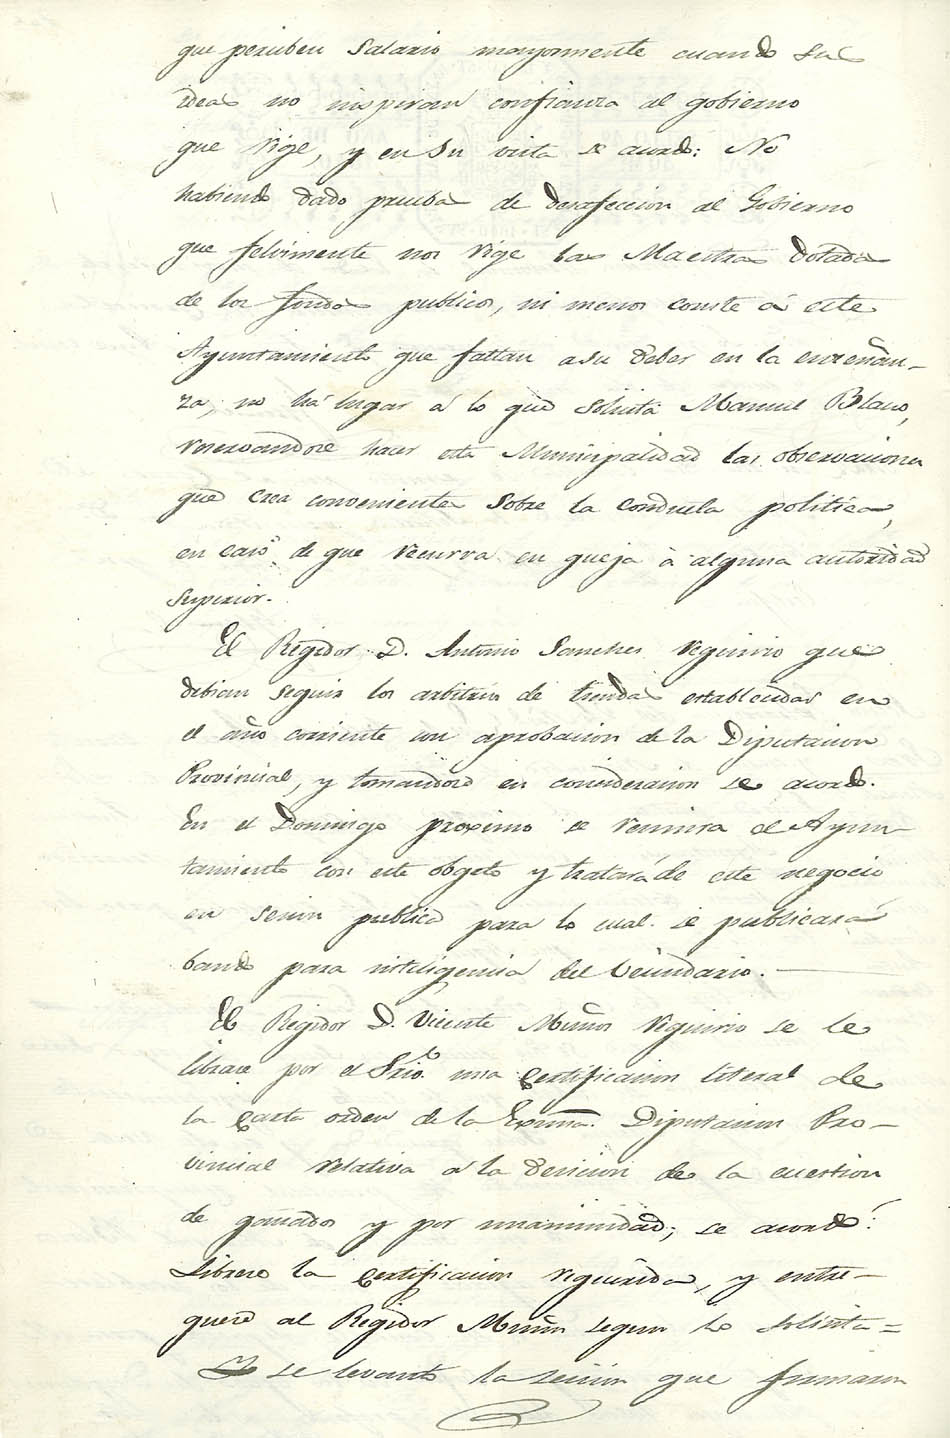 que perciben Salario mayormente cuando sus
ideas no inspiran confianza al gobierno
que rige, y en su vista se acordó: No
habiendo dado pruebas de desafeccion al Gobierno
que felizmente nos rige las Maestras dotadas
de los fondos publicos, ni menos conste á este
Ayuntamiento que faltan a su deber en la enseñan-
za, no há lugar á lo que solicita Manuel Blanco,
reservandose hacer esta Municipalidad las observaciones
que crea convenientes sobre la conducta politica,
en caso de que recurra en queja á alguna autoridad
superior.
El Regidor D. Antonio Sanches requirio que
debian seguir los arbitrios de tiendas establecidas en
el año corriente con aprobacion de la Diputacion
Provincial, y tomandose en consideracion se acordó.
En el Domingo proximo se reunira el Ayun-
tamiento con este obgeto y tratará de este negocio
en sesion publica para lo cual se publicará
bando para inteligencia del Vecindario.
El Regidor D. Vicente Muños requirio se le
librase por el Srio. una Certificacion literal de
la Carta orden de la Exma. Diputacion Pro-
vincial relativa á la decision de la cuestion
de ganados y por unanimidad, se acordó:
Librese la Certificacion requirida, y entre-
guese al Regidor Muños segun lo solicita=
Y se levantó la sesion que firmaron